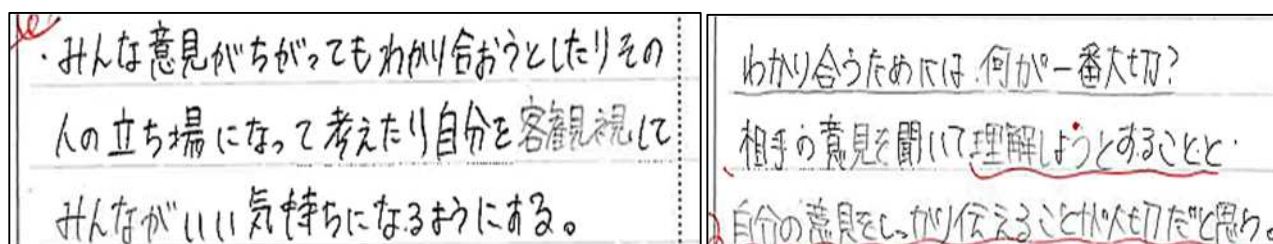 ・みんな意見がちがってもわかり合おうとしたりその
人の立ち場になって考えたり自分を客観視して
みんながいい気持ちになるようにする。
わかり合うためには、何が一番大切?
相手の意見を聞いて理解しようとすることと
自分の意見をしっかり伝えることが大切だと思う。